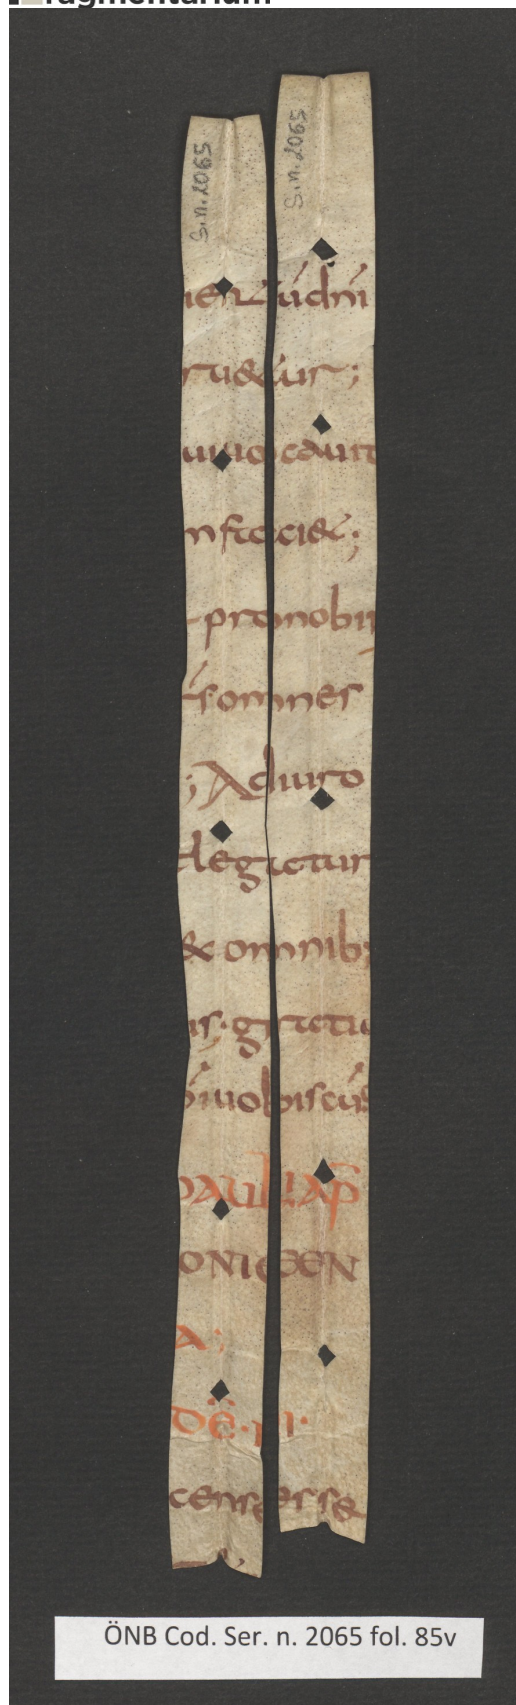 Fragmentarium
S.n. 2065
S.n. 2065
uentū dñi
ru&ur;
uiuocauit
faci&;
pronobis
fromnes
; Adiuro
legatur
& omnib;
is. gratia
uobiscū
PAULI AP̄
ONICEN
A;
DĒ. II.
censesse
ÖNB Cod. Ser. n. 2065 fol. 85v